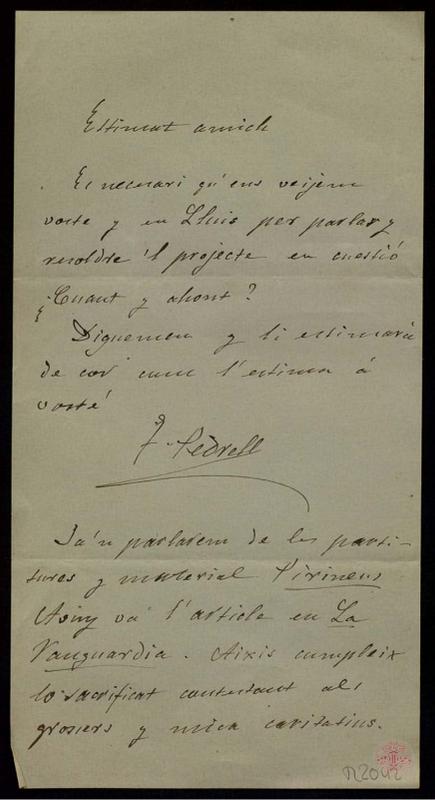 Estimat amich
Es necesari qu'ens vejem
vosté y en Lluis per parlar y
resoldre 'l projecte en cuestió
¿Cuant y ahont?
Diguemeu y li estimaría
de cor com l'estima á
vosté
F. Pedrell
Ja'n parlarem de les parti-
tures y material Pirineus
Avuy va l'article en La
Vanguardia. Aixis cumpleix
lo sacrificat contestant als
grosers y mica caritatius.
n2042